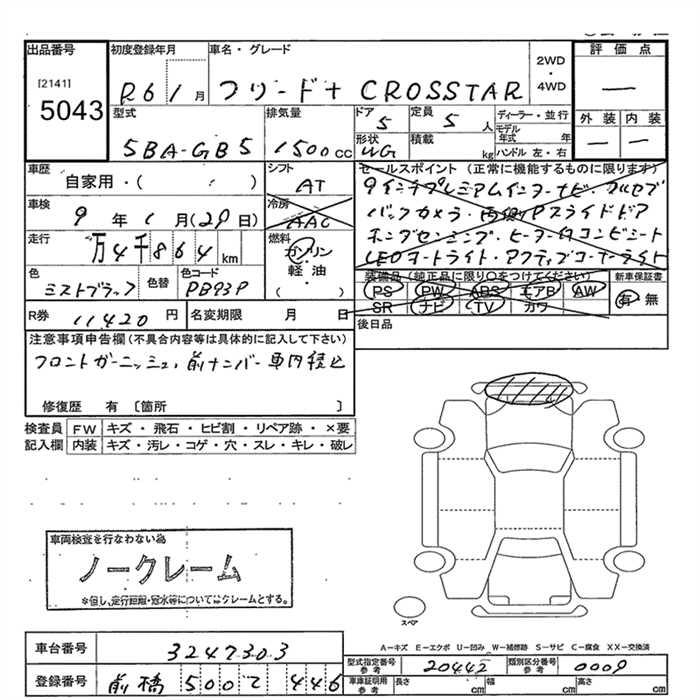 出品番号
[2141]
5043
初度登録年月
R6 1月
車名・グレード
フリード+ CROSSTAR
2WD
・
4WD
評価点
—
型式
5BA-GB5
排気量
1500cc
ドア
5
定員
5人
形状
WG
積載
kg
ディーラー・並行
モデル
年式 年
ハンドル 左・右
外装 内装
— —
車歴
自家用・( )
シフト
AT
車検
9年1月(29日)
冷房
AAC
走行
万4千864km
燃料
ガソリン
軽油
( )
色
ミストブラック
色替
色コード
PB93P
R券
11420円
名変期限 月 日
セールスポイント (正常に機能するものに限ります)
9インチプレミアムインターナビ・フルセグ
バックカメラ・両側Pスライドドア
ホンダセンシング・ヒーター付コンビシート
LEDオートライト・アクティブコーナーライト
装備品(純正品に限り○をつけてください)
PS PW ABS エアB AW
SR ナビ TV カワ
新車保証書
有 無
後日品
注意事項申告欄(不具合内容等は具体的に記入して下さい)
フロントガーニッシュ,前ナンバー車内積込
修復歴 有 〔箇所 〕
検査員
記入欄
FW キズ・飛石・ヒビ割・リペア跡・×要
内装 キズ・汚レ・コゲ・穴・スレ・キレ・破レ
車両検査を行なわない為
ノークレーム
※但し、走行距離・冠水等についてはクレームとする。
スペア
A−キズ E−エクボ U−凹み W−補修跡 S−サビ C−腐食 XX−交換済
車台番号
3247303
登録番号
前橋 500 て 446
型式指定番号
参考
20442
類別区分番号
参考
0009
車庫証明用
参考
長さ cm
幅 cm
高さ cm